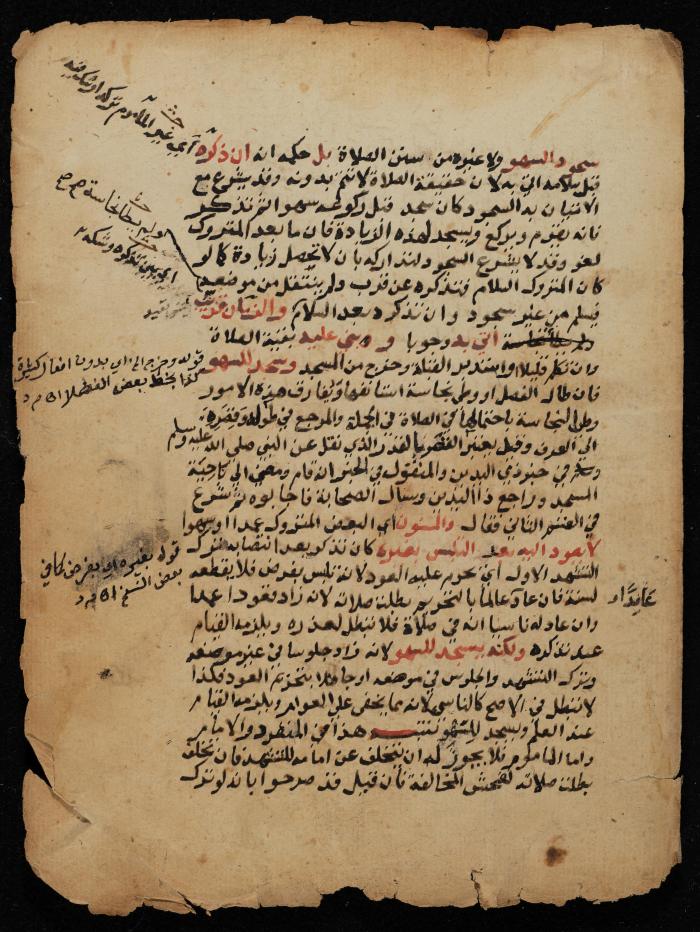 سجود السهو ولا غيره من سنن الصلاة بل حكمه انه ان ذكره
قبل سلامه اتي به لان حقيقة الصلاة لا تتم بدونه وقد يشرع مع
الاتيان به السجود كان سجد قبل ركوعه سهوا ثم تذكر
فانه يقوم ويركع ويسجد لهذه الزيادة فان ما بعد المتروك
لغو وقد لا يشرع السجود لتداركه بان لا تحصل زيادة كما لو
كان المتروك السلام فتذكره عن قرب ولم ينتقل من موضعه
فيسلم من غير سجود وان تذكره بعد السلام والزمان قريب
اتي به وجوبا وبني عليه بقية الصلاة
وان تكلم قليلا واستدبر القبلة وخرج من المسجد وسجد للسهو
فان طال الفصل او وطي نجاسة استانفها ويفارق هذه الامور
وطي النجاسة باحتمالها في الصلاة في الجملة والمرجع في طوله وقصره
الي العرف وقيل يعتبر القصر بالقدر الذي نقل عن النبي صلي الله عليه وسلم
في خبر ذي اليدين والمنقول في الخبر انه قام ومضي الي ناحية
المسجد وراجع ذا اليدين وسال الصحابة فاجابوه ثم شرع
في القسم الثاني فقال والمسنون اي البعض المتروك عمدا او سهوا
لا يعود اليه بعد التلبس بغيره كان تذكر بعد انتصابه ترك
التشهد الاول اي يحرم عليه العود لانه تلبس بفرض فلا يقطعه
لسنة فان عاد عالما بالتحريم بطلت صلاته لانه زاد قعودا عمدا
وان عاد له ناسيا انه في صلاة فلا تبطل لعذره ويلزمه القيام
عند تذكره ولكنه يسجد للسهو لانه زاد جلوسا في غير موضعه
وترك التشهد والجلوس في موضعه او جاهلا بتحريم العود فكذا
لا تبطل في الاصح كالناسي لانه مما يخفي علي العوام ويلزمه القيام
عند العلم ويسجد للسهو تنبيه هذا في المنفرد والامام
واما الماموم فلا يجوز له ان يتخلف عن امامه للتشهد فان تخلف
بطلت صلاته لفحش المخالفة فان قيل قد صرحوا بانه لو ترك
اي غير الماموم تركه او شك فيه
ولم يطا نجاسة صح
قوله وخرج الخ اي بدون افعال كثيرة
كذا بخط بعض الفضلا اه م د
قوله بغيره اي بفرض كما في
بعض النسخ اه م د
عامدا